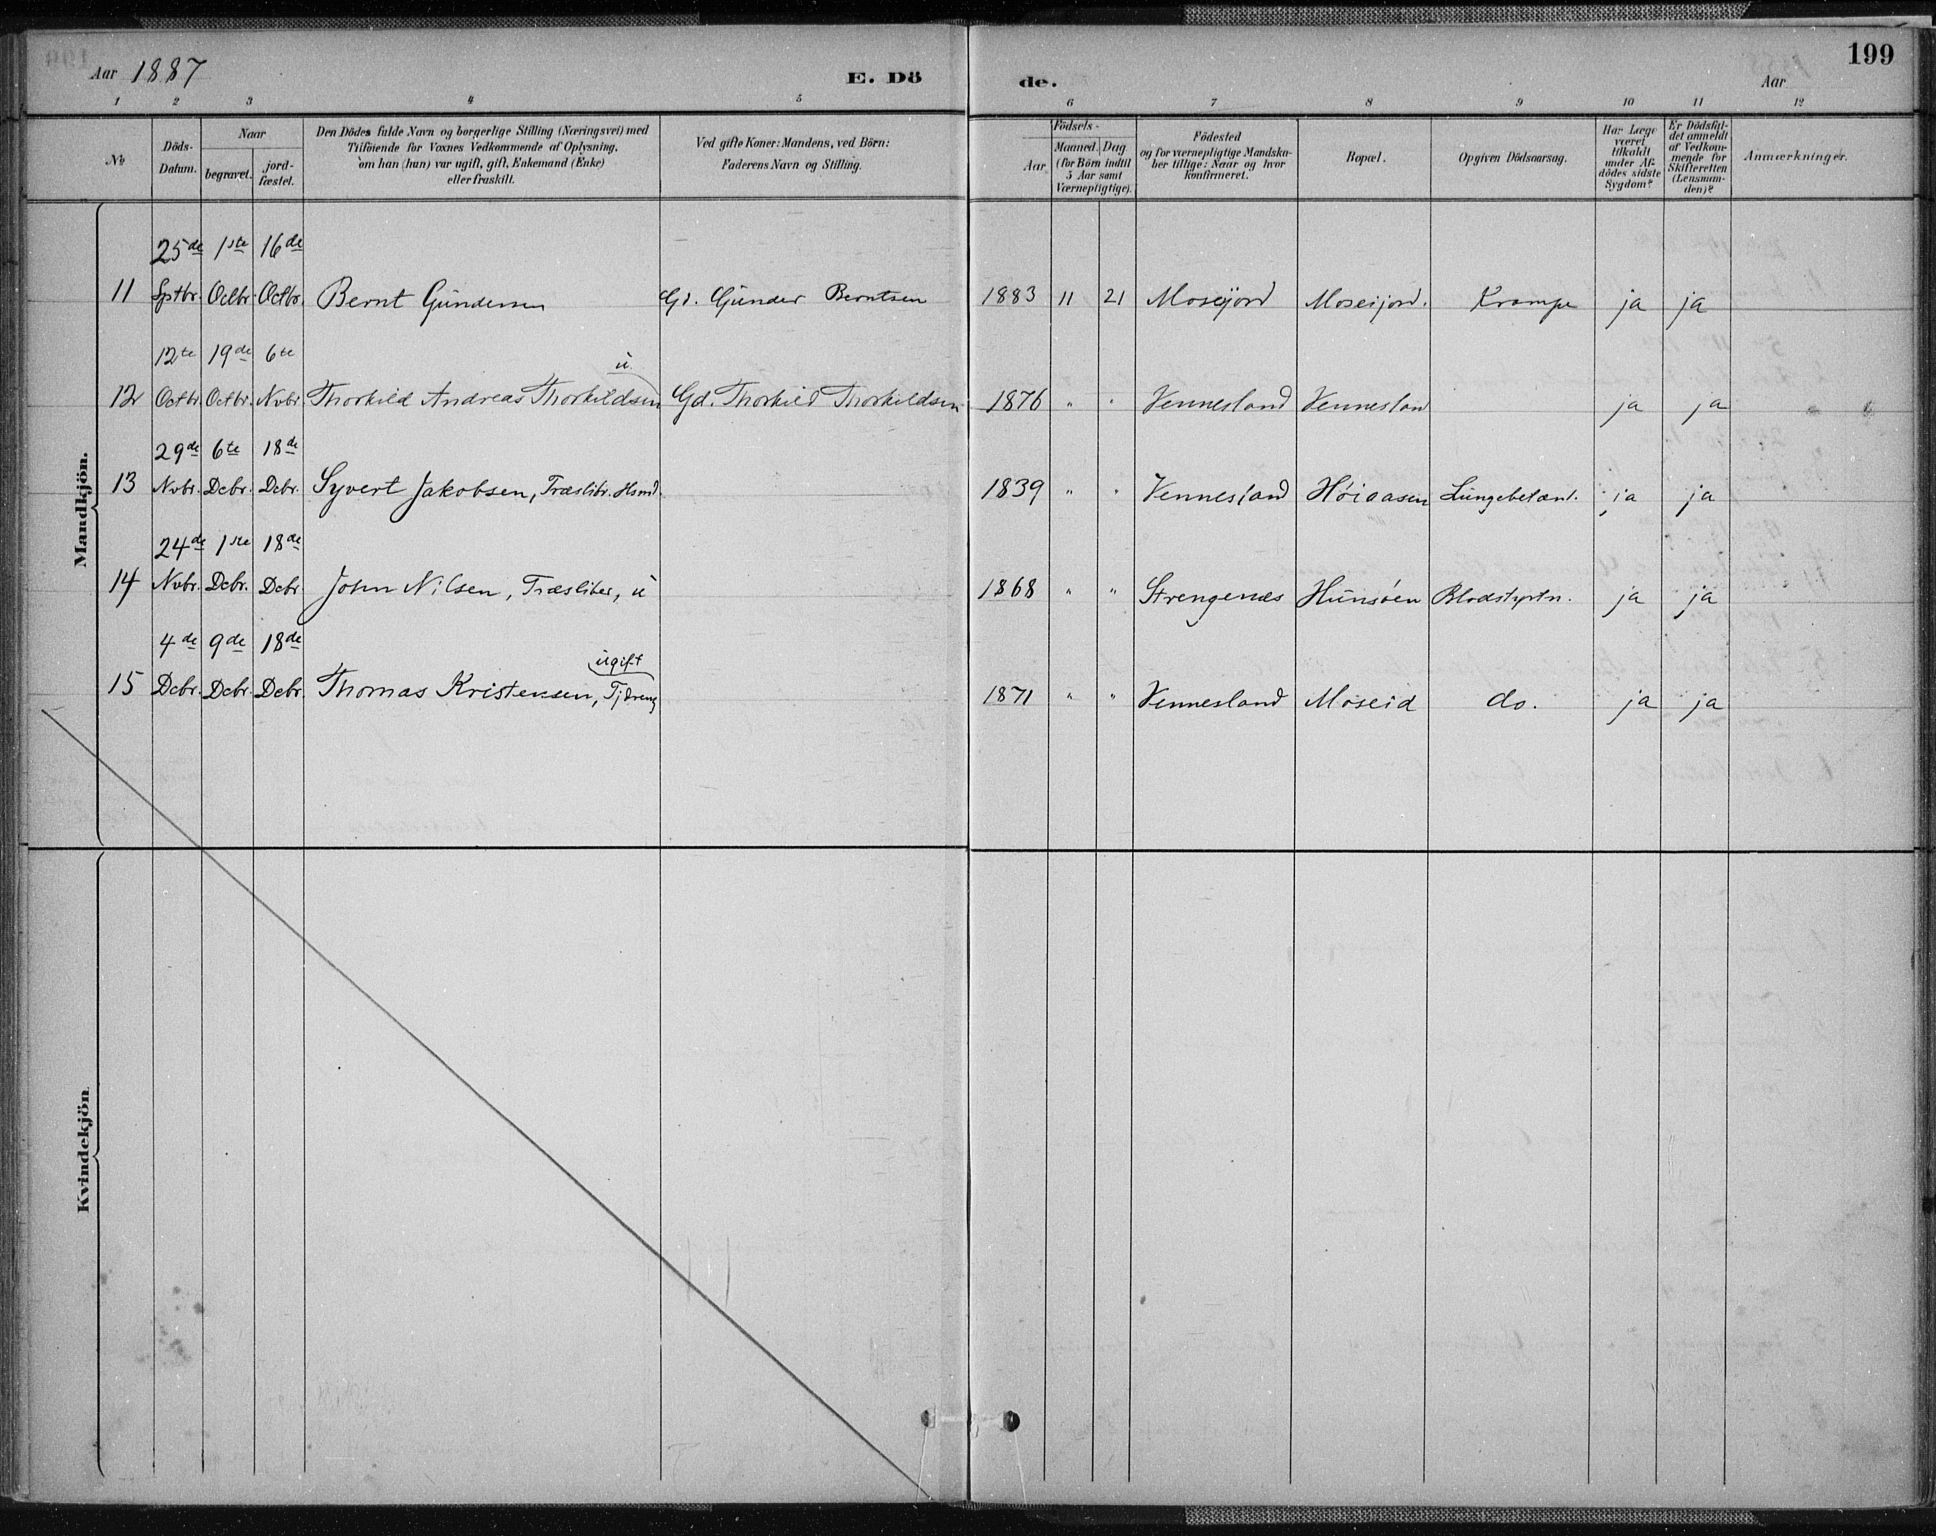 Aar 1887
E. Dö
de.
Aar
199
1 2 3 4 5 6 7 8 9 10 11 12
No
Döds-
Datum.
Naar
begravet.
jord-
fæstet.
Den Dödes fulde Navn og borgerlige Stilling (Næringsvei) med
Tilföiende for Voxnes Vedkommende af Oplysning,
om han (hun) var ugift, gift, Enkemand (Enke)
eller fraskilt.
Ved gifte Koner: Mandens, ved Börn:
Faderens Navn og Stilling.
Födsels-
Aar
Maaned. Dag
(for Börn indtil
5 Aar samt
Værnepligtige).
Födested
og for værnepligtige Mandska-
ber tillige: Naar og hvor
konfirmeret.
Bopæl.
Opgiven Dödsaarsag.
Har Læge
været
tilkaldt
under Af-
dödes sidste
Sygdom?
Er Dödsfal-
det anmeldt
af Vedkom-
mende for
Skifteretten
(Lensman-
den)?
Anmærkninger.
Mandkjön.
25de 1ste 16de
11 Sptbr. Octbr. Octbr. Bernt Gundersen Gd. Gunder Berntsen 1883 11 21 Moseijord Moseijord. Krampe ja ja
12te 19de 6te
u.
12 Octbr. Octbr. Nvbr. Thorkild Andreas Thorkildsen Gd. Thorkild Thorkildsen 1876 " " Vennesland Venneslan ja ja
29de 6te 18de
13 Nvbr. Dcbr. Dcbr. Syvert Jakobsen, Træslibr. Hsmd. 1839 " " Vennesland Höiaasen Lungebetænd. ja ja
24de 1ste 18de
14 Nvbr. Dcbr. Dcbr. John Nilsen, Træsliber, u 1868 " " Strengenæs Hunsöen Blodstyrtn. ja ja
4de 9de 18de
ugift
15 Dcbr. Dcbr. Dcbr. Thomas Kristensen, Tjdreng 1871 " " Vennesland Moseid do. ja ja
Kvindekjön